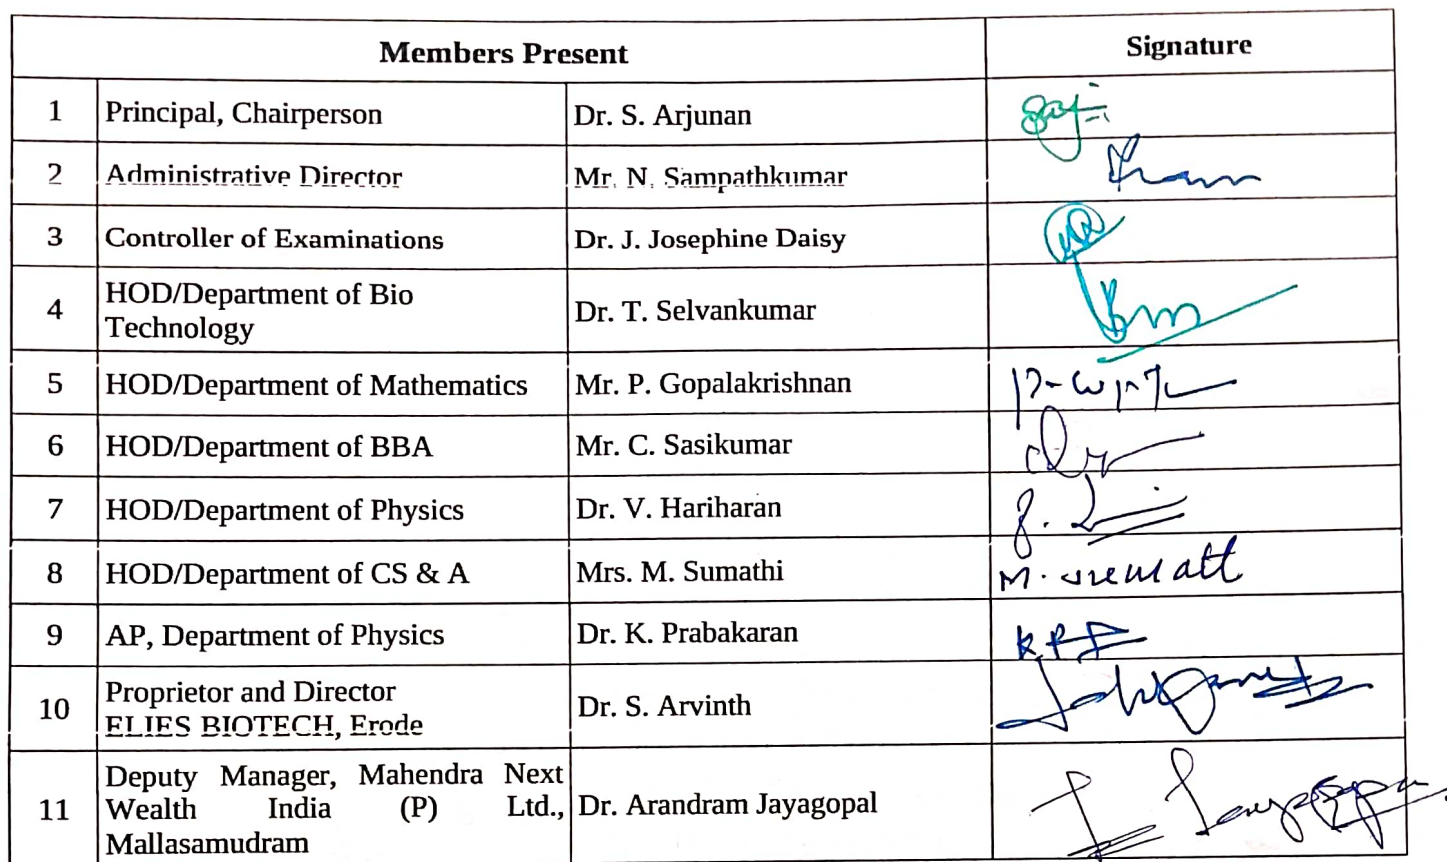 Members Present Signature
1 Principal, Chairperson Dr. S. Arjunan
2 Administrative Director Mr. N. Sampathkumar
3 Controller of Examinations Dr. J. Josephine Daisy
HOD/Department of Bio
4 Technology Dr. T. Selvankumar
5 HOD/Department of Mathematics Mr. P. Gopalakrishnan
6 HOD/Department of BBA Mr. C. Sasikumar
7 HOD/Department of Physics Dr. V. Hariharan
8 HOD/Department of CS & A Mrs. M. Sumathi
9 AP, Department of Physics Dr. K. Prabakaran
Proprietor and Director
10 ELIES BIOTECH, Erode Dr. S. Arvinth
Deputy Manager, Mahendra Next
11 Wealth India (P) Ltd., Dr. Arandram Jayagopal
Mallasamudram